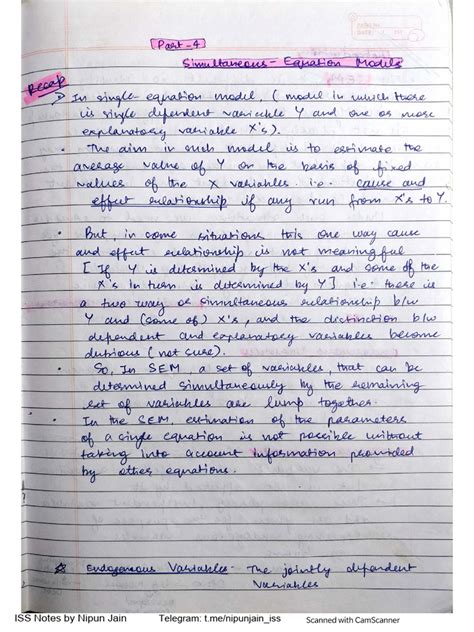 Part-4
Simultaneous-Equation Models
Recap
In single-equation model, (model in which there
is single dependent variable Y and one or more
explanatory variable X's).
The aim in such model is to estimate the
average value of Y on the basis of fixed
values of the X variables. i.e. cause and
effect relationship if any run from X's to Y.
But, in some situations this one way cause
and effect relationship is not meaningful
[If Y is determined by the X's and some of the
X's in turn is determined by Y] i.e. there is
a two way or simultaneous relationship b/w
Y and (some of) X's, and the distinction b/w
dependent and explanatory variables become
dubious (not sure).
So, In SEM, a set of variables, that can be
determined simultaneously by the remaining
set of variables are lump together.
In the SEM, estimation of the parameters
of a single equation is not possible without
taking into account information provided
by other equations.
Endogenous Variables- The jointly dependent
Variables
ISS Notes by Nipun Jain Telegram: t.me/nipunjain_iss Scanned with CamScanner